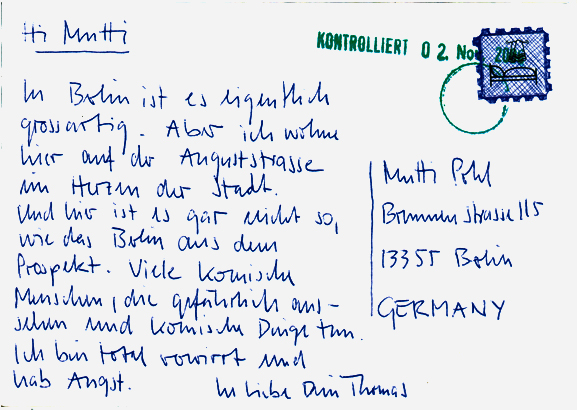 Hi Mutti
KONTROLLIERT 02. Nov 2006
In Berlin ist es eigentlich
grossartig. Aber ich wohne
hier auf der Auguststrasse
im Herzen der Stadt.
Und hier ist es gar nicht so,
wie das Berlin aus dem
Prospekt. Viele komische
Menschen, die gefährlich aus-
sehen und komische Dinge tun.
Ich bin total verwirrt und
hab Angst.
In Liebe Dein Thomas
Mutti Pohl
Brunnenstrasse 115
13355 Berlin
GERMANY